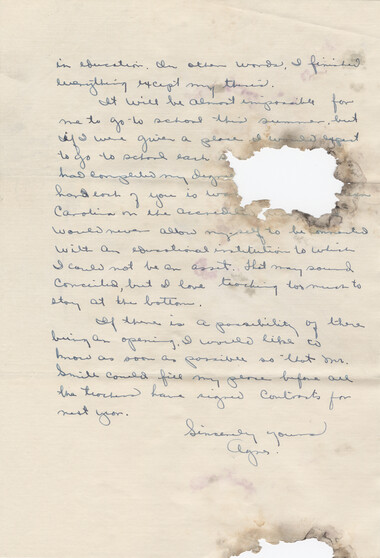 in education. In other words, I finished
everything except my thesis.
It will be almost impossible for
me to go to school this summer, but
if I were given a place I would expect
to go to school each
had completed my degree
hard of you is
Carolina on the
would never allow myself to be connected
with an educational institution to which
I could not be an asset. That may sound
conceited, but I love teaching too much to
stay at the bottom.
If there is a possibility of there
being an opening, I would like to
know as soon as possible so that Mr.
Smith could fill my place before all
the teachers have signed contracts for
next year.
Sincerely yours
Agns.